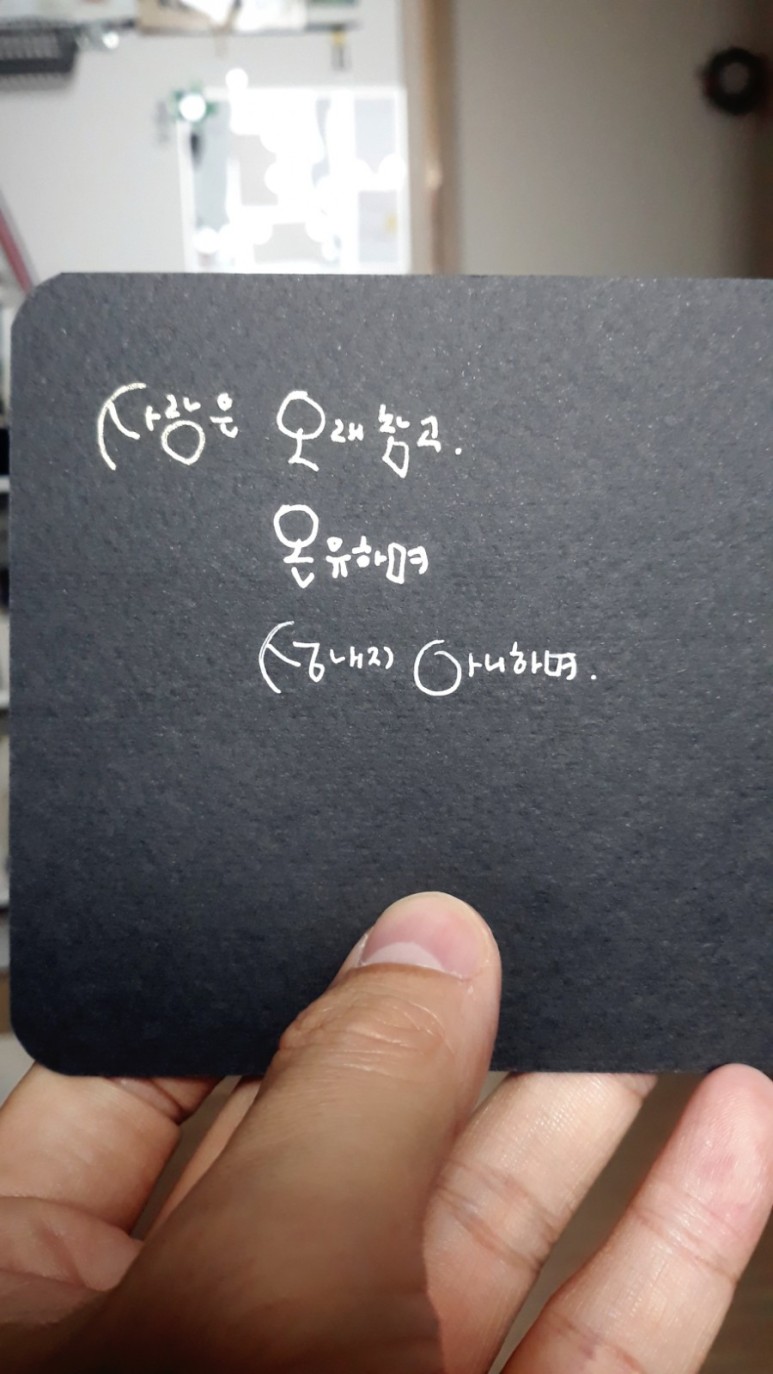 사랑은 오래참고.
온유하며
성내지 아니하며.